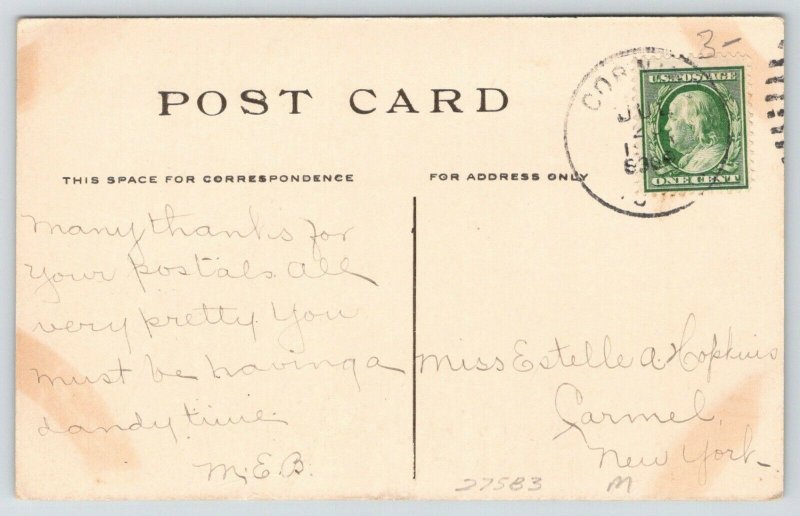 3-
U.S. POSTAGE
ONE CENT
POST CARD
THIS SPACE FOR CORRESPONDENCE
FOR ADDRESS ONLY
many thanks for
your postals. all
very pretty. You
must be having a
dandy time
M.E.B.
Miss Estelle A. Hopkins
Carmel,
New York-
27583 M